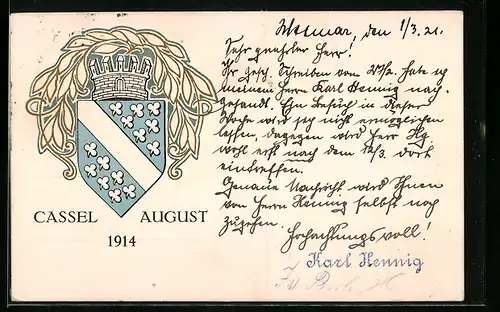 Weimar, den 1/3. 21.
Sehr geehrter Herr!
Ihr gesch. Schreiben vom 27/2. habe ich
meinem Herrn Karl Hennig nach-
gesandt. Ein Besuch in dieser
Woche wird sich nicht ermöglichen
lassen, dagegen wird Herr Hg
wohl erst nach dem 10/3. dort
eintreffen.
Genaue Nachricht wird Ihnen
von Herrn Hennig selbst noch
zugehen.
Hochachtungsvoll!
Karl Hennig
CASSEL AUGUST
1914